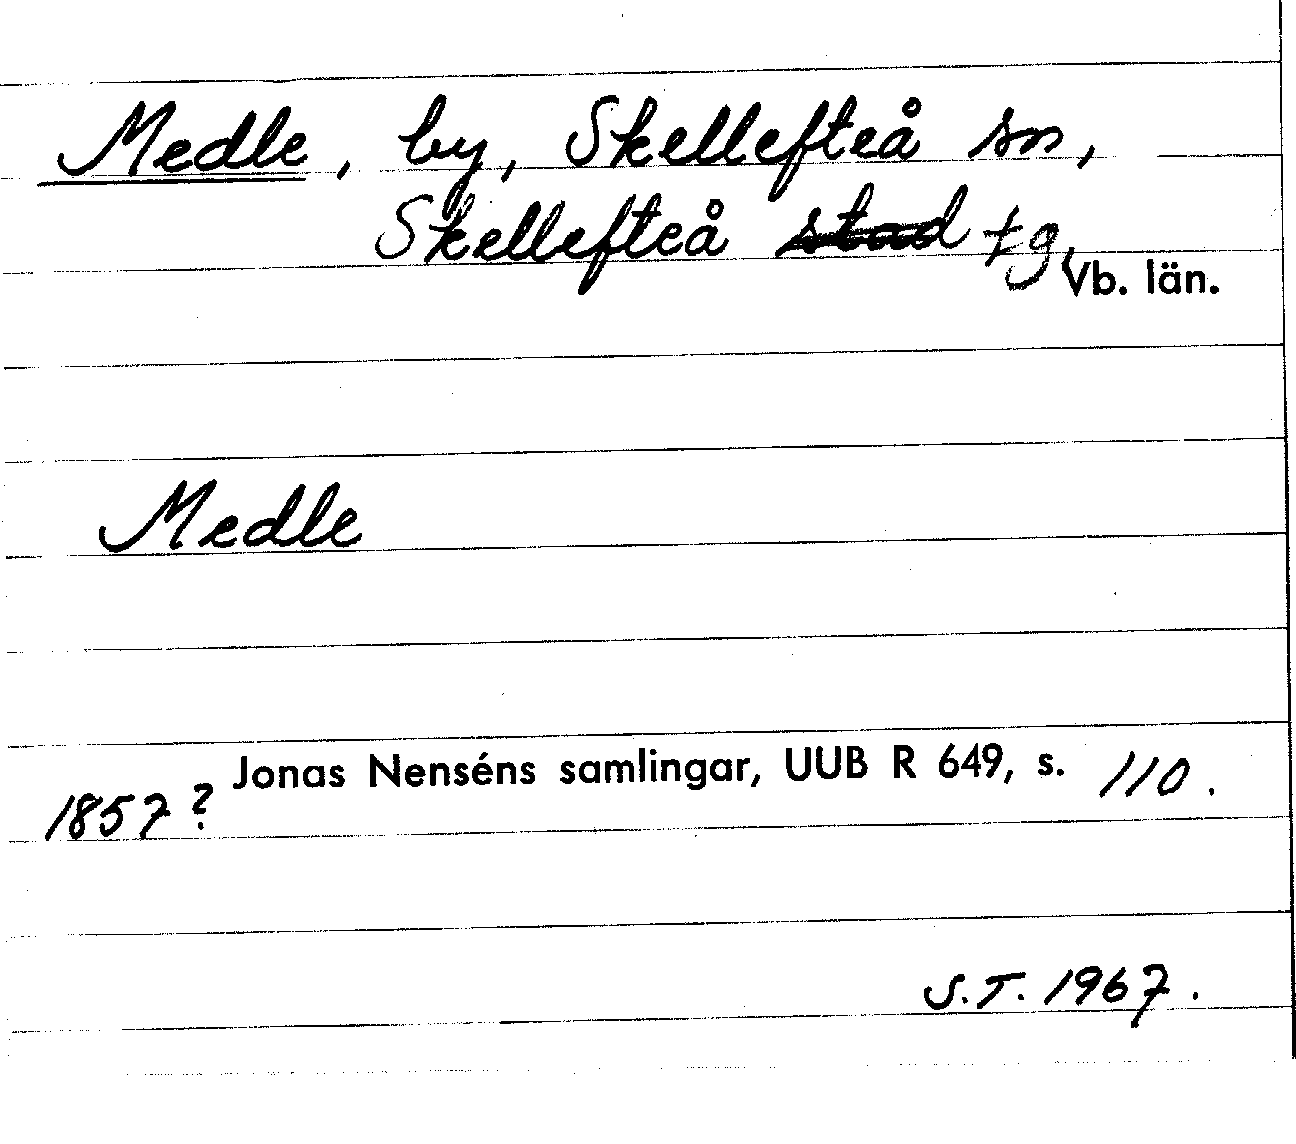 Medle, by, Skellefteå sn,
Skellefteå stad tg, Vb. län.
Medle
1857? Jonas Nenséns samlingar, UUB R 649, s. 110.
S.T. 1967.